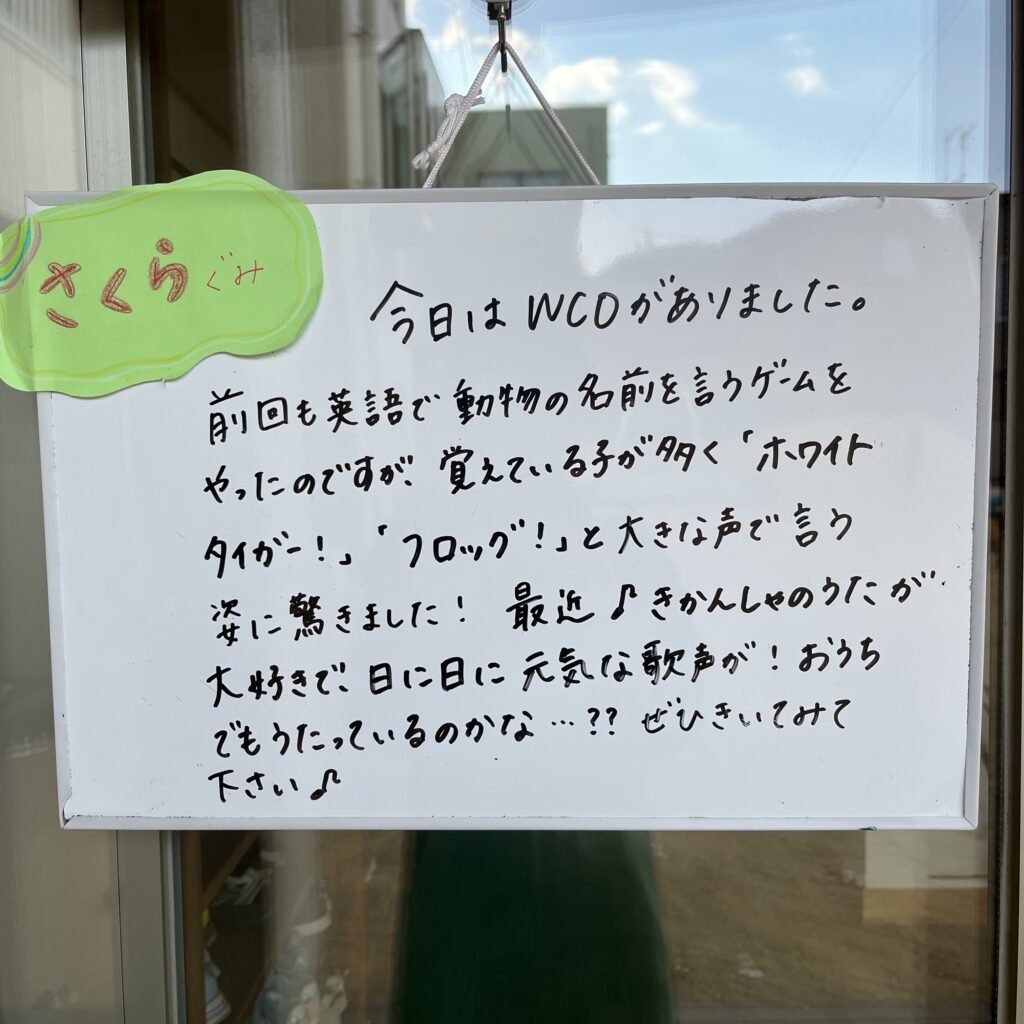 さくらぐみ
今日はWCOがありました。
前回も英語で動物の名前を言うゲームを
やったのですが、覚えている子が多く「ホワイト
タイガー!」「フロッグ!」と大きな声で言う
姿に驚きました! 最近♪きかんしゃのうたが
大好きで、日に日に元気な歌声が!おうち
でもうたっているのかな…?? ぜひきいてみて
下さい♪